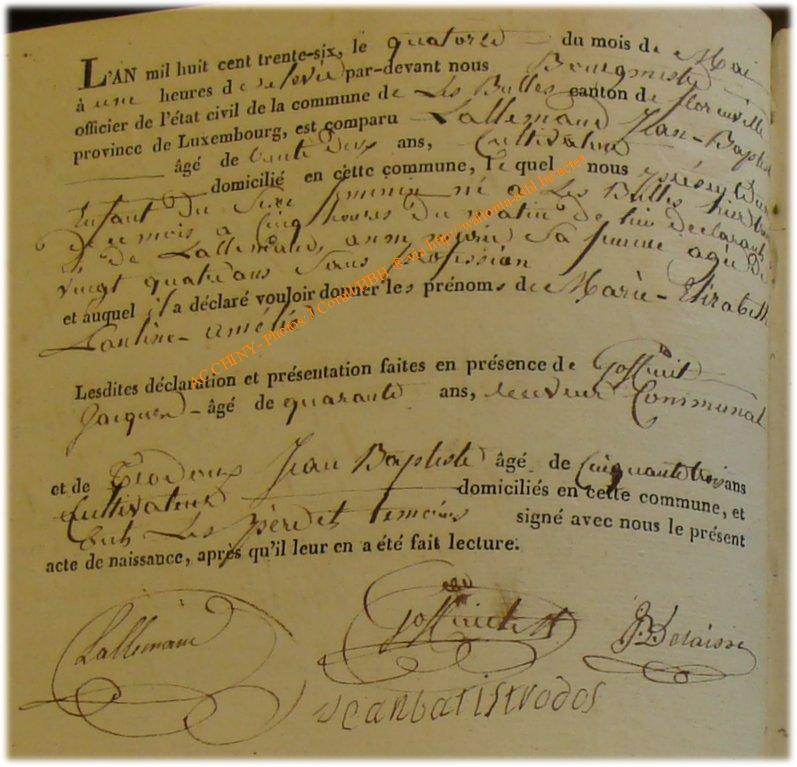 L'AN mil huit cent trente-six, le quatorze du mois de Mai
à une heures de relevée par-devant nous Bourgmestre
officier de l'état civil de la commune de Les Bulles canton de florenville
province de Luxembourg, est comparu Lallemand Jean-Baptiste
âgé de trente deux ans, Cultivateur
domicilié en cette commune, le quel nous présente un
Enfant du Sexe feminin né à Les Bulles hier
de ce mois à Cinq heures du matin de lui déclarant
de Lallemand, anne marie Sa femme agée de
vingt quatre ans Sans profession
et auquel il a déclaré vouloir donner les prénoms de Marie-Elizabeth
Pauline-amélie
Lesdites déclaration et présentation faites en présence de Goffinet
Jacques - âgé de quarante ans, receveur Communal
et de Rodoux Jean Baptiste âgé de Cinquante trois ans
Cultivateur domiciliés en cette commune, et
Ont Les père et temoins signé avec nous le présent
acte de naissance, après qu'il leur en a été fait lecture.
Lallemand Goffinet JB Delaisse
jeanbatistrodos
ACCHINY- Photos J.Collot/IBBH